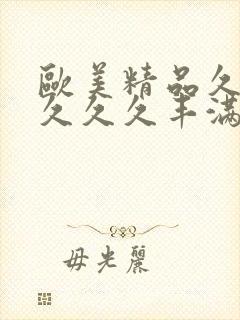 歐美精品久
久久久丰滿
毋光麗